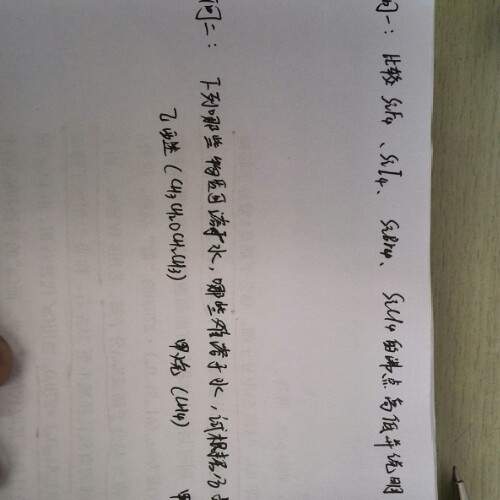 问一：比较 SiF4、SiI4、SiBr4、SiCl4 的沸点高低并说明
问二：下列哪些物质溶于水，哪些难溶于水，试根据分
乙醚（CH3CH2OCH2CH3） 甲烷（CH4）